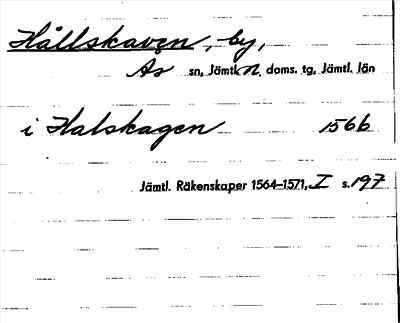 Hållskaven, by,
As sn, Jämtl. N. doms. tg, Jämtl. län
i Halskagen 1566
Jämtl. Räkenskaper 1564–1571, I s. 197